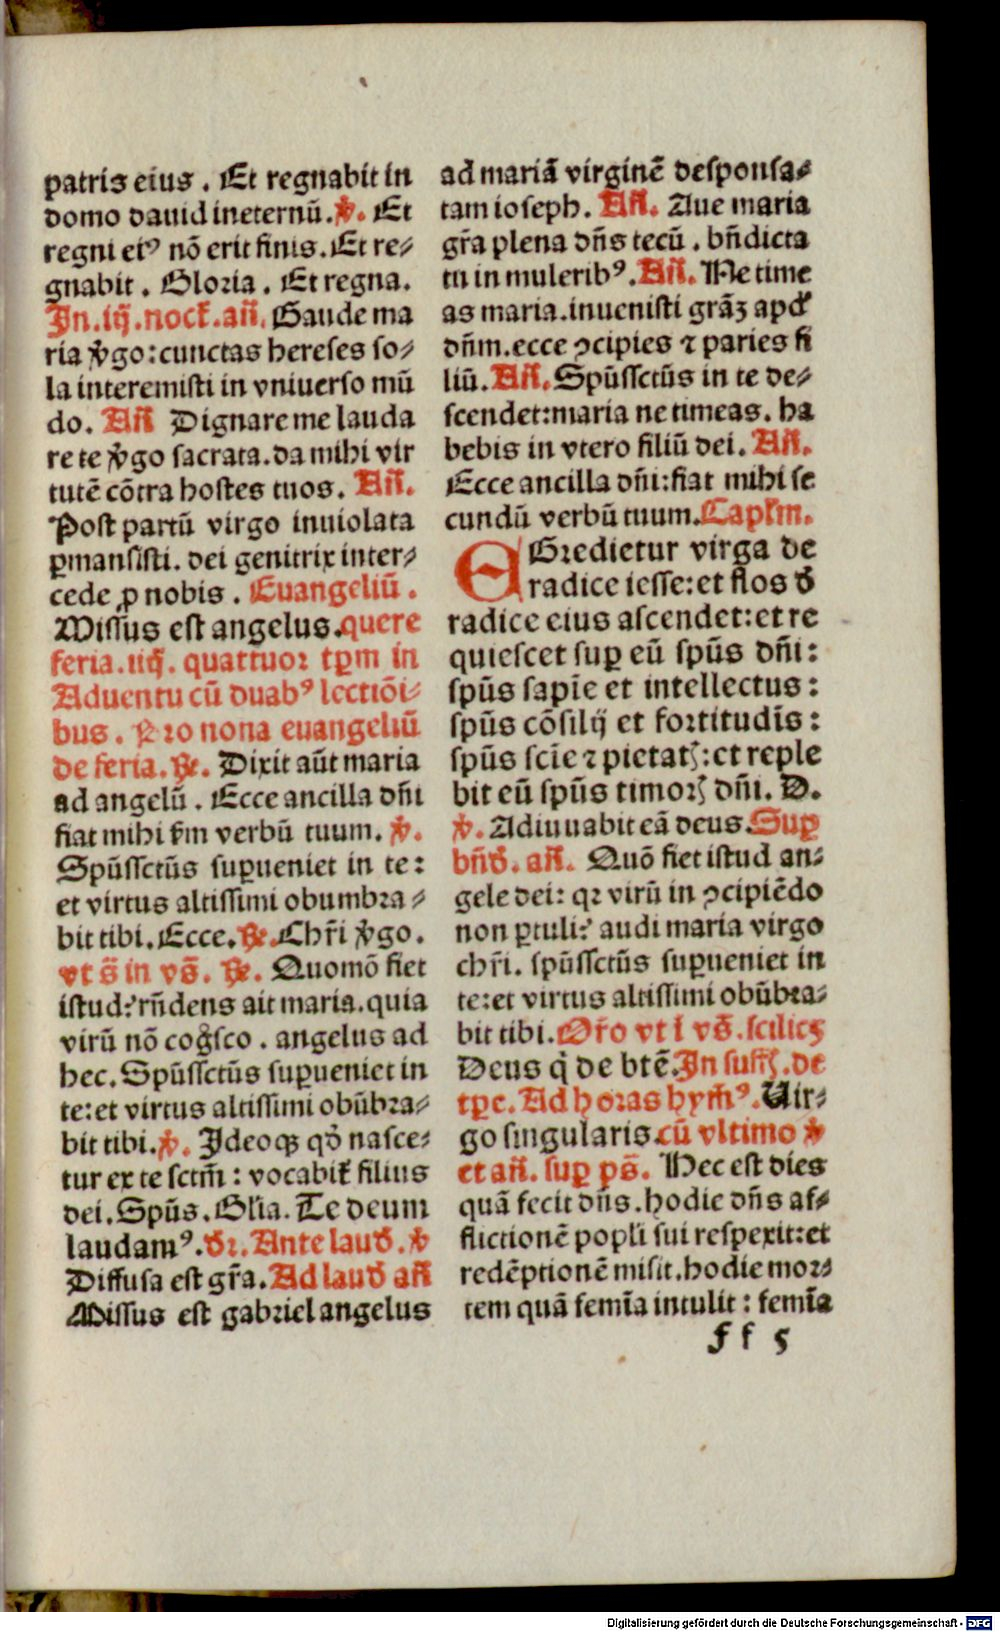 patris eius . Et regnabit in
domo dauid ineternū. ꝟ. Et
regni eiꝰ nō erit finis. Et re⸗
gnabit . Gloria . Et regna.
In .iij. nock̄. an̄. Gaude ma
ria ꝟgo: cunctas hereses so⸗
la interemisti in vniuerso mū
do. An̄ Dignare me lauda
re te ꝟgo sacrata. da mihi vir
tutē cōtra hostes tuos. An̄.
Post partū virgo inuiolata
ꝑmansisti. dei genitrix inter⸗
cede ꝓ nobis . Euangeliū .
Missus est angelus. quere
feria. iiij. quattuor tꝑm in
Aduentu cū duabꝰ lectiōi⸗
bus . Pro nona euangeliū
de feria. ℟. Dixit aūt maria
ad angelū . Ecce ancilla dn̄i
fiat mihi ẜm verbū tuum. ꝟ.
Spūssctūs suꝑueniet in te:
et virtus altissimi obumbra⸗
bit tibi. Ecce. ℟. Chr̄i ꝟgo.
vt s̄ in vs̄. ℟. Quomō fiet
istud? rn̄dens ait maria. quia
virū nō cogͦsco . angelus ad
hec. Spūssctūs suꝑueniet in
te: et virtus altissimi obūbra⸗
bit tibi. ꝟ. Ideoqꝫ qđ nasce⸗
tur ex te sctm̄ : vocabit᷑ filius
dei. Spūs. Glīa. Te deum
laudamꝰ. đr. Ante lauđ. ꝟ
Diffusa est gr̄a. Ad lauđ an̄
Missus est gabriel angelus
ad mariā virginē desponsa⸗
tam ioseph. An̄. Aue maria
gr̄a plena dn̄s tecū . bn̄dicta
tu in muleribꝰ. An̄. Ne time
as maria. inuenisti grāꝫ apđ
dn̄m. ecce ꝯcipies ⁊ paries fi
liū. An̄. Spūssctūs in te de⸗
scendet: maria ne timeas. ha
bebis in vtero filiū dei. An̄.
Ecce ancilla dn̄i: fiat mihi se
cundū verbū tuum. Capl̄m.
EGredietur virga de
radice iesse: et flos đ
radice eius ascendet: et re
quiescet suꝑ eū spūs dn̄i:
spūs sapīe et intellectus:
spūs cōsilij et fortitudīs:
spūs scīe ⁊ pietatꝭ: et reple
bit eū spūs timorꝭ dn̄i. D.
ꝟ. Adiuuabit eā deus. Suꝑ
bn̄đ. an̄. Quō fiet istud an⸗
gele dei: qꝛ virū in ꝯcipiēdo
non ꝑtuli? audi maria virgo
chr̄i. spūssctūs suꝑueniet in
te: et virtus altissimi obūbra⸗
bit tibi. Or̄o vt ī vs̄. scilicꝫ
Deus q̇ de btē. In suffꝭ. de
tꝑe. Ad horas hym̄ꝰ. Uir⸗
go singularis. cū vltimo ꝟ
et an̄. suꝑ ps̄. Hec est dies
quā fecit dn̄s. hodie dn̄s af⸗
flictionē popli sui respexit: et
redēptionē misit. hodie mor⸗
tem quā femīa intulit : femīa
ff 5
Digitalisierung gefördert durch die Deutsche Forschungsgemeinschaft - DFG